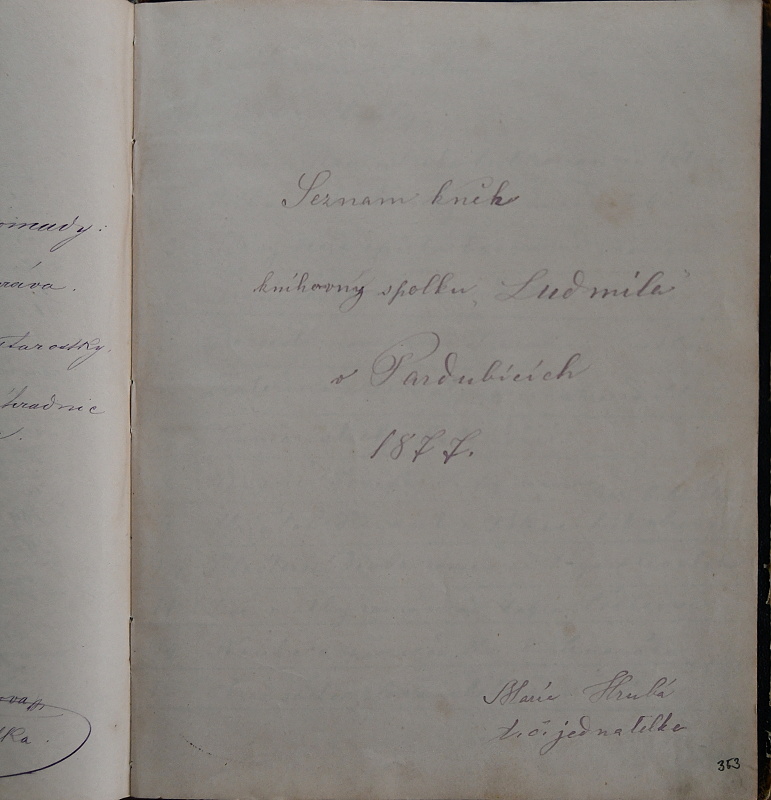 omady:
ráva.
starostky.
hradnic
tka.
Seznam knih
knihovny spolku „Ludmila"
v Pardubicích
1877.
Marie Hrubá
t. č. jednatelka
353